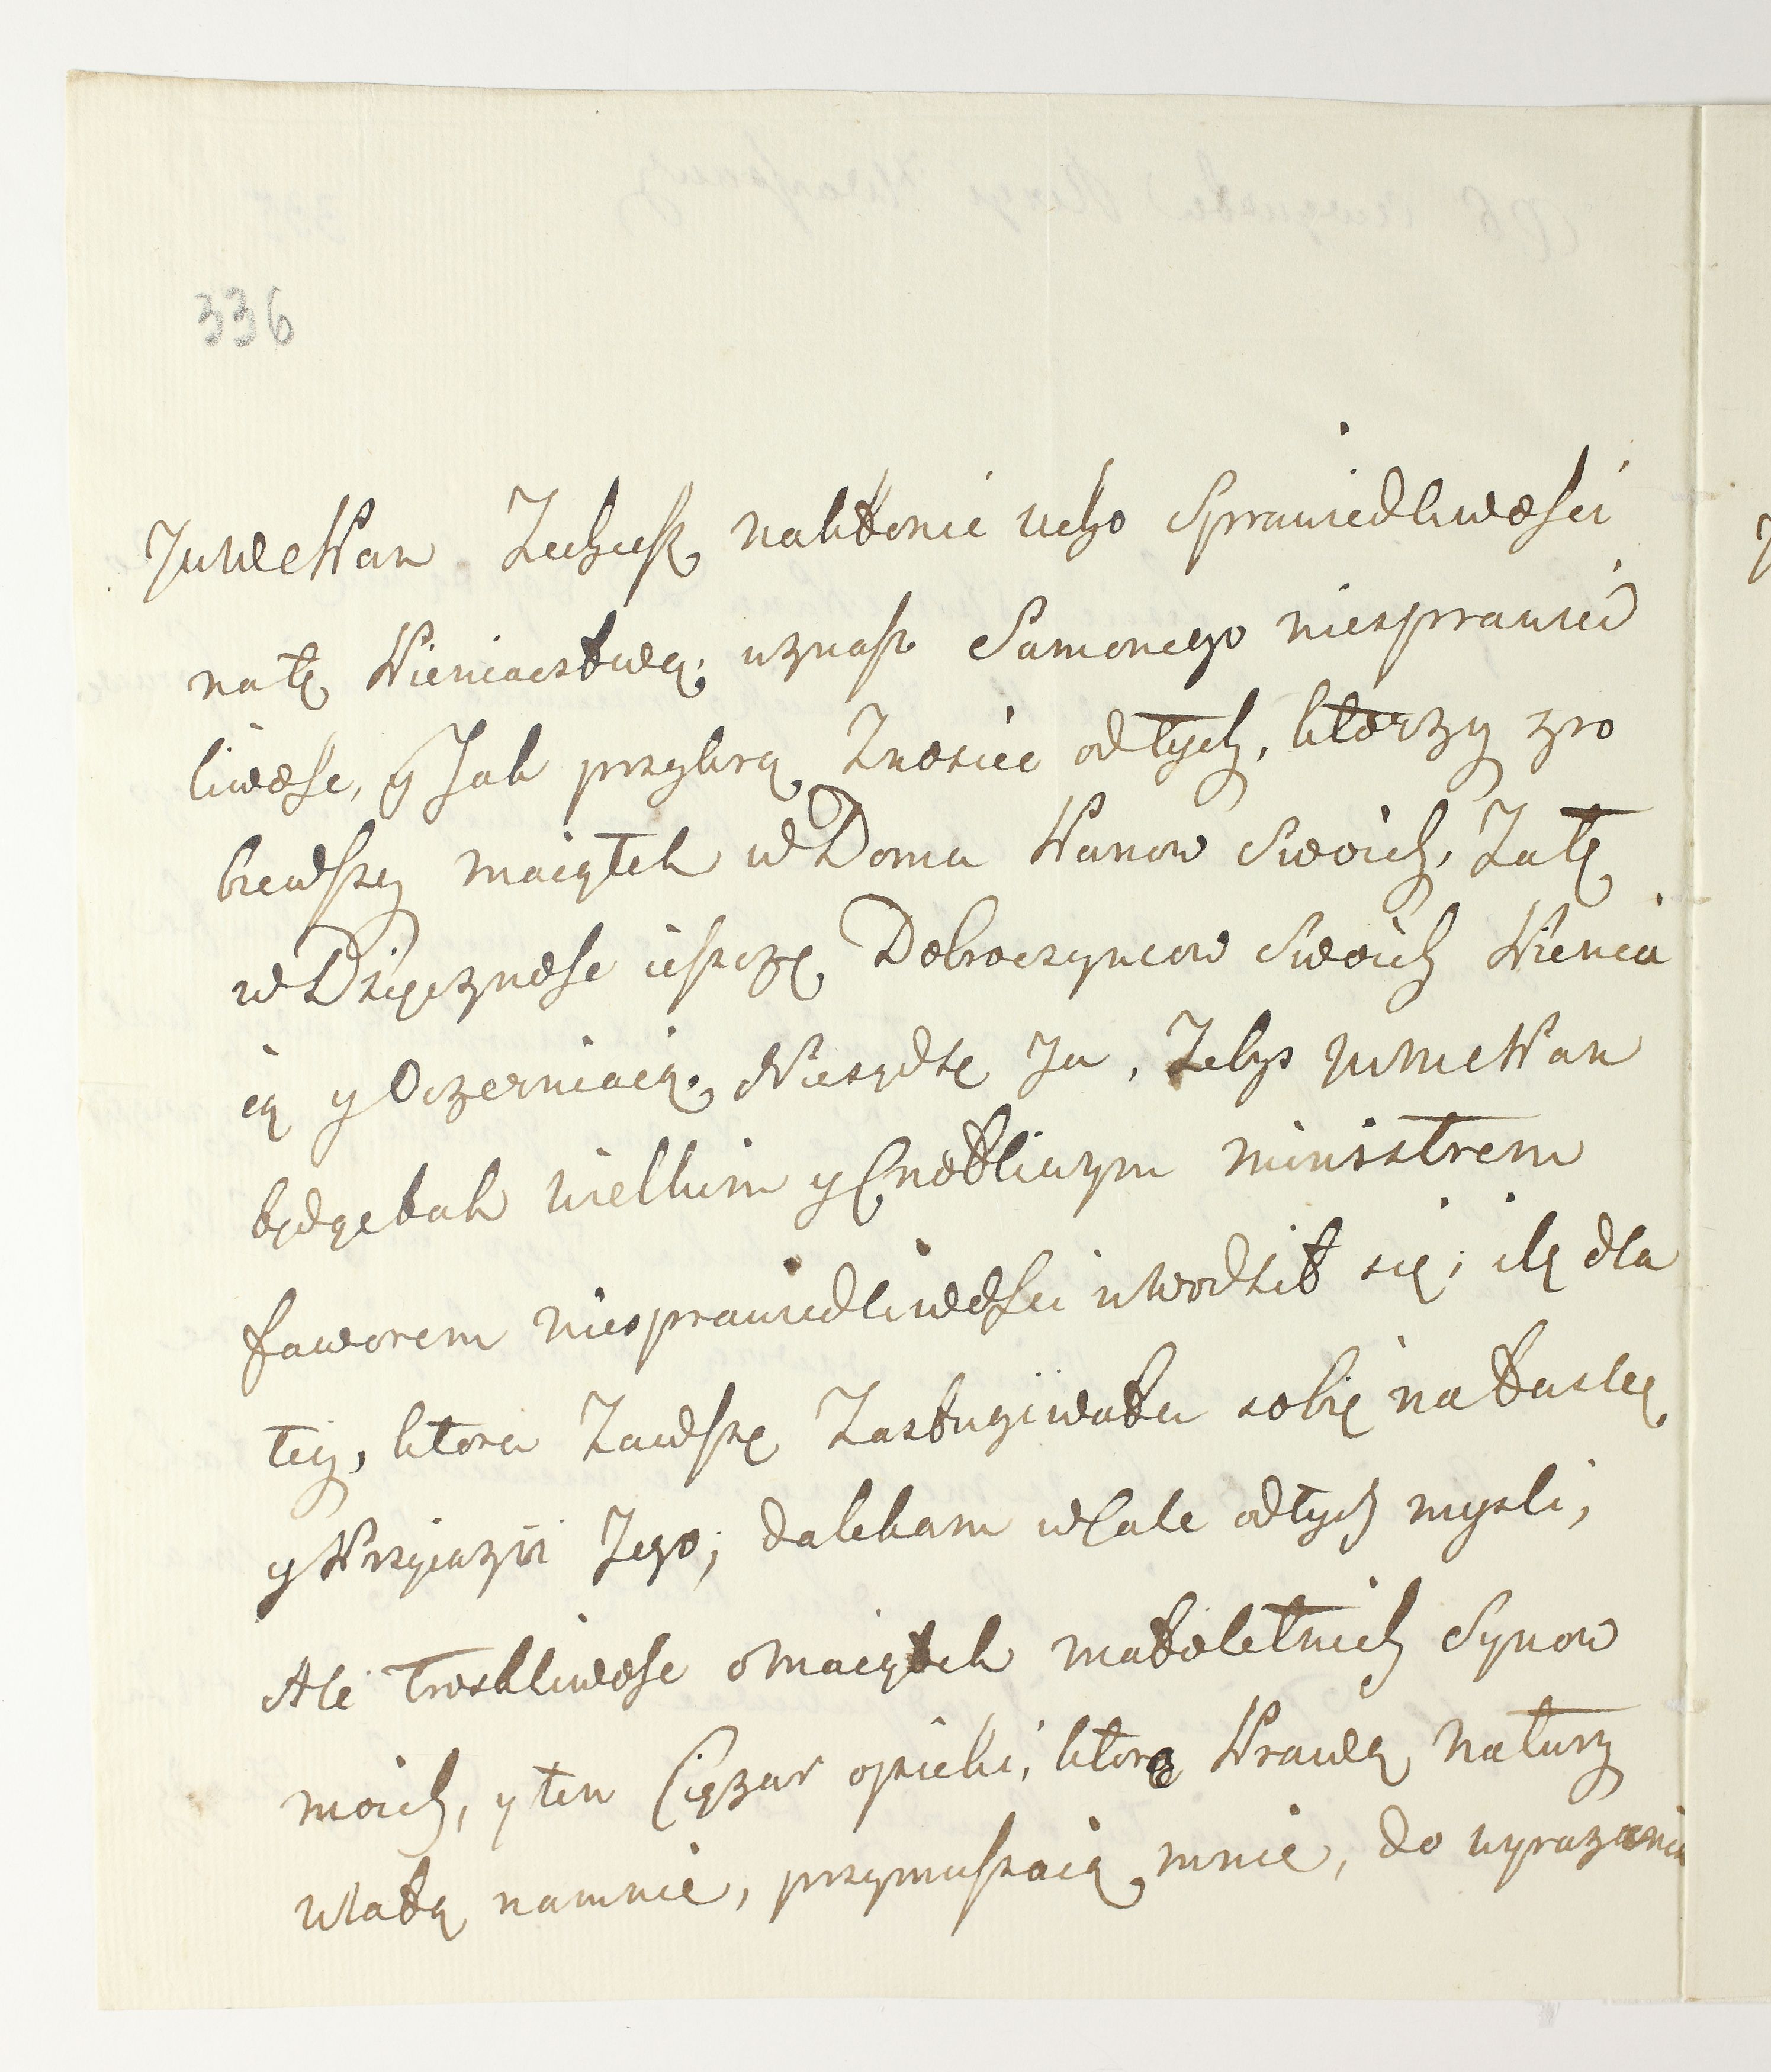 336
JWWPan Zechcesz nakłonić ucho Sprawiedliwości
natę Pieniactwą; uznasz Samonego niesprawied
liwośc, y Jak przykrą Znosiec odtych, ktorzy zro
biwszy maiątek wDomu Panow Swoich, Zatę
wDzięcznośc ieszczę Dobroczyncow Swoich Pienia
ią y Oczerniaią. Niesądzę Ja, Zebys JWWPan
będąctak wielkim yCnotliwym ministrem
faworem niesprawiedliwości uwodził się; ilę dla
tey, ktora Zawszę Zasługiwała sobię na Łaskę
y Przyiazni Jego; dalekam wCale odtych mysli,
Ale troskliwośc omaiątek małoletnich Synow
moich, yten Cięzar opieki, ktorą Prawą natury
wlałą namnie, przymuszaią mnie, do wyrazenia